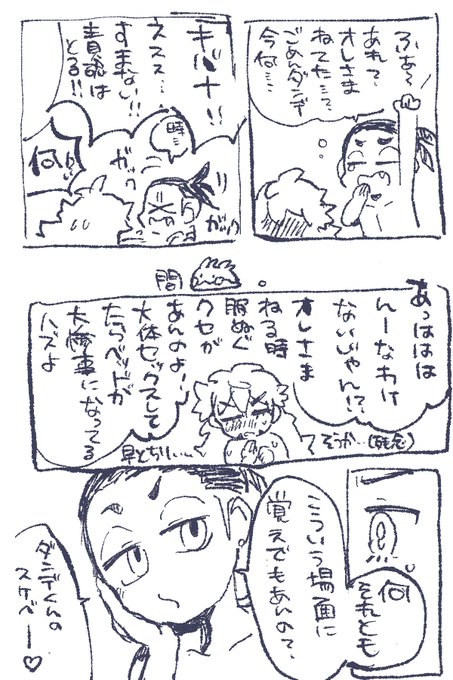 ふぁ〜
あれ?
オレさま
ねてた…?
ごめんダンデ
今何…
キバナ!!
ネススス…
すまない!!
責任は
とる!!
時…
ガッ
何!?
ガッ
間
あっははは
んーなわけ
ないじゃん!?
オレさま
ねる時
服ぬぐ
クセが
あんのよ!
大体セックスして
たらベッドが
大惨事になってる
ハズよ
そうか…(残念)
早とちり…
何
それとも
こういう場面に
覚えでもあんの?
ダンデくんの
スケベー♡